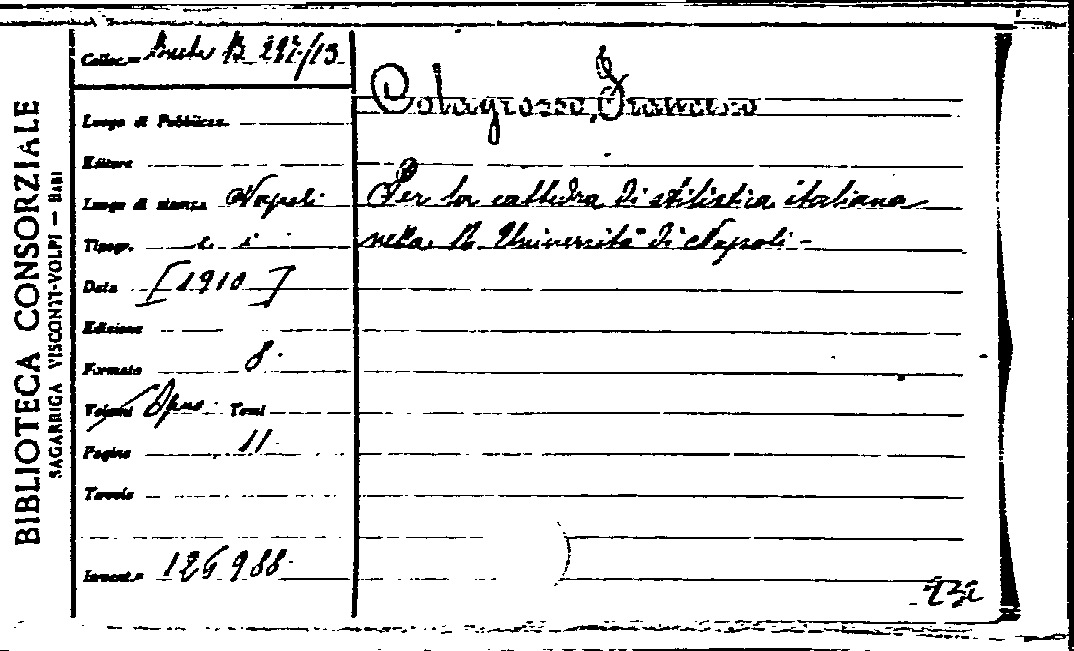 BIBLIOTECA CONSORZIALE
SAGARRIGA VISCONTI-VOLPI — BARI
Colloc.ne Busta B 217/13
Luogo di Pubblicaz.
Editore
Luogo di stampa Napoli
Tipogr.
Data [1910]
Edizione
Formato 8.
Volumi Opus. Tomi
Pagine 11
Tavole
Invent.ne 126988.
Colagrosso, Francesco
Per la cattedra di stilistica italiana
nella R. Università di Napoli -